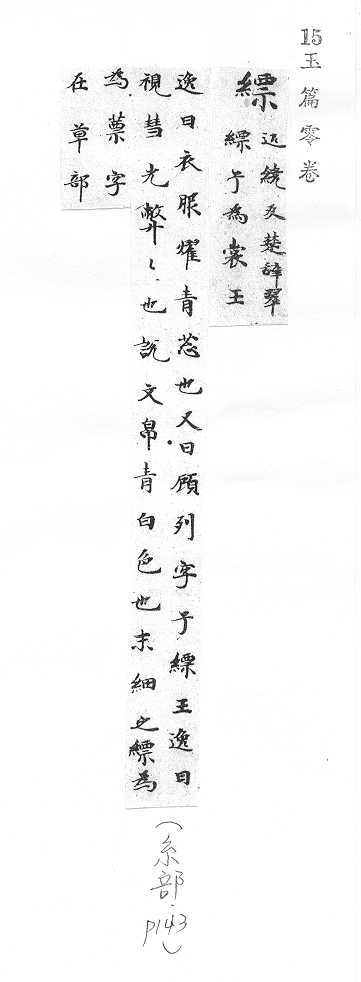 15 玉篇零卷
縹 近繞反楚辞翠
縹于為裳王
逸曰衣服耀青葱也又曰顧列字于縹王逸曰
視彗光弊〻也說文帛青白色也末細之縹為
為蔈字
在草部
(糸部.P143)